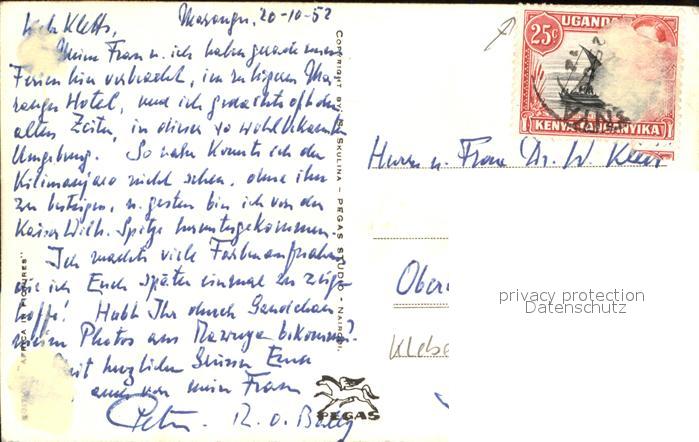 Marangu, 20-10-52
Lieb Kletts,
Meine Frau u. ich haben gerade unsere
Ferien hier verbracht, im ruhigen Ma-
rangu Hotel, und ich gedachte oft der
alten Zeiten, in dieser so wohlbekannten
Umgebung. So nahe konnte ich den
Kilimanjaro nicht sehen, ohne ihn
zu besteigen, u. gestern bin ich von der
Kaiser Wilh. Spitze heruntergekommen.
Ich machte viele Farbenaufnahmen
die ich Euch später einmal zu zeigen
hoffe! Habt Ihr durch
meine Photos aus bekommen?
Mit herzlichen Grüssen Euer
auch von meiner Frau
Peter R. O.
COPYRIGHT BY SKULINA – PEGAS STUDIO – NAIROBI.
"AFRICA IN PICTURES"
PEGAS
25c UGANDA
KENYA TANGANYIKA
Herrn u. Frau Dr. W. Klett
Ober
privacy protection
Datenschutz
Klebe